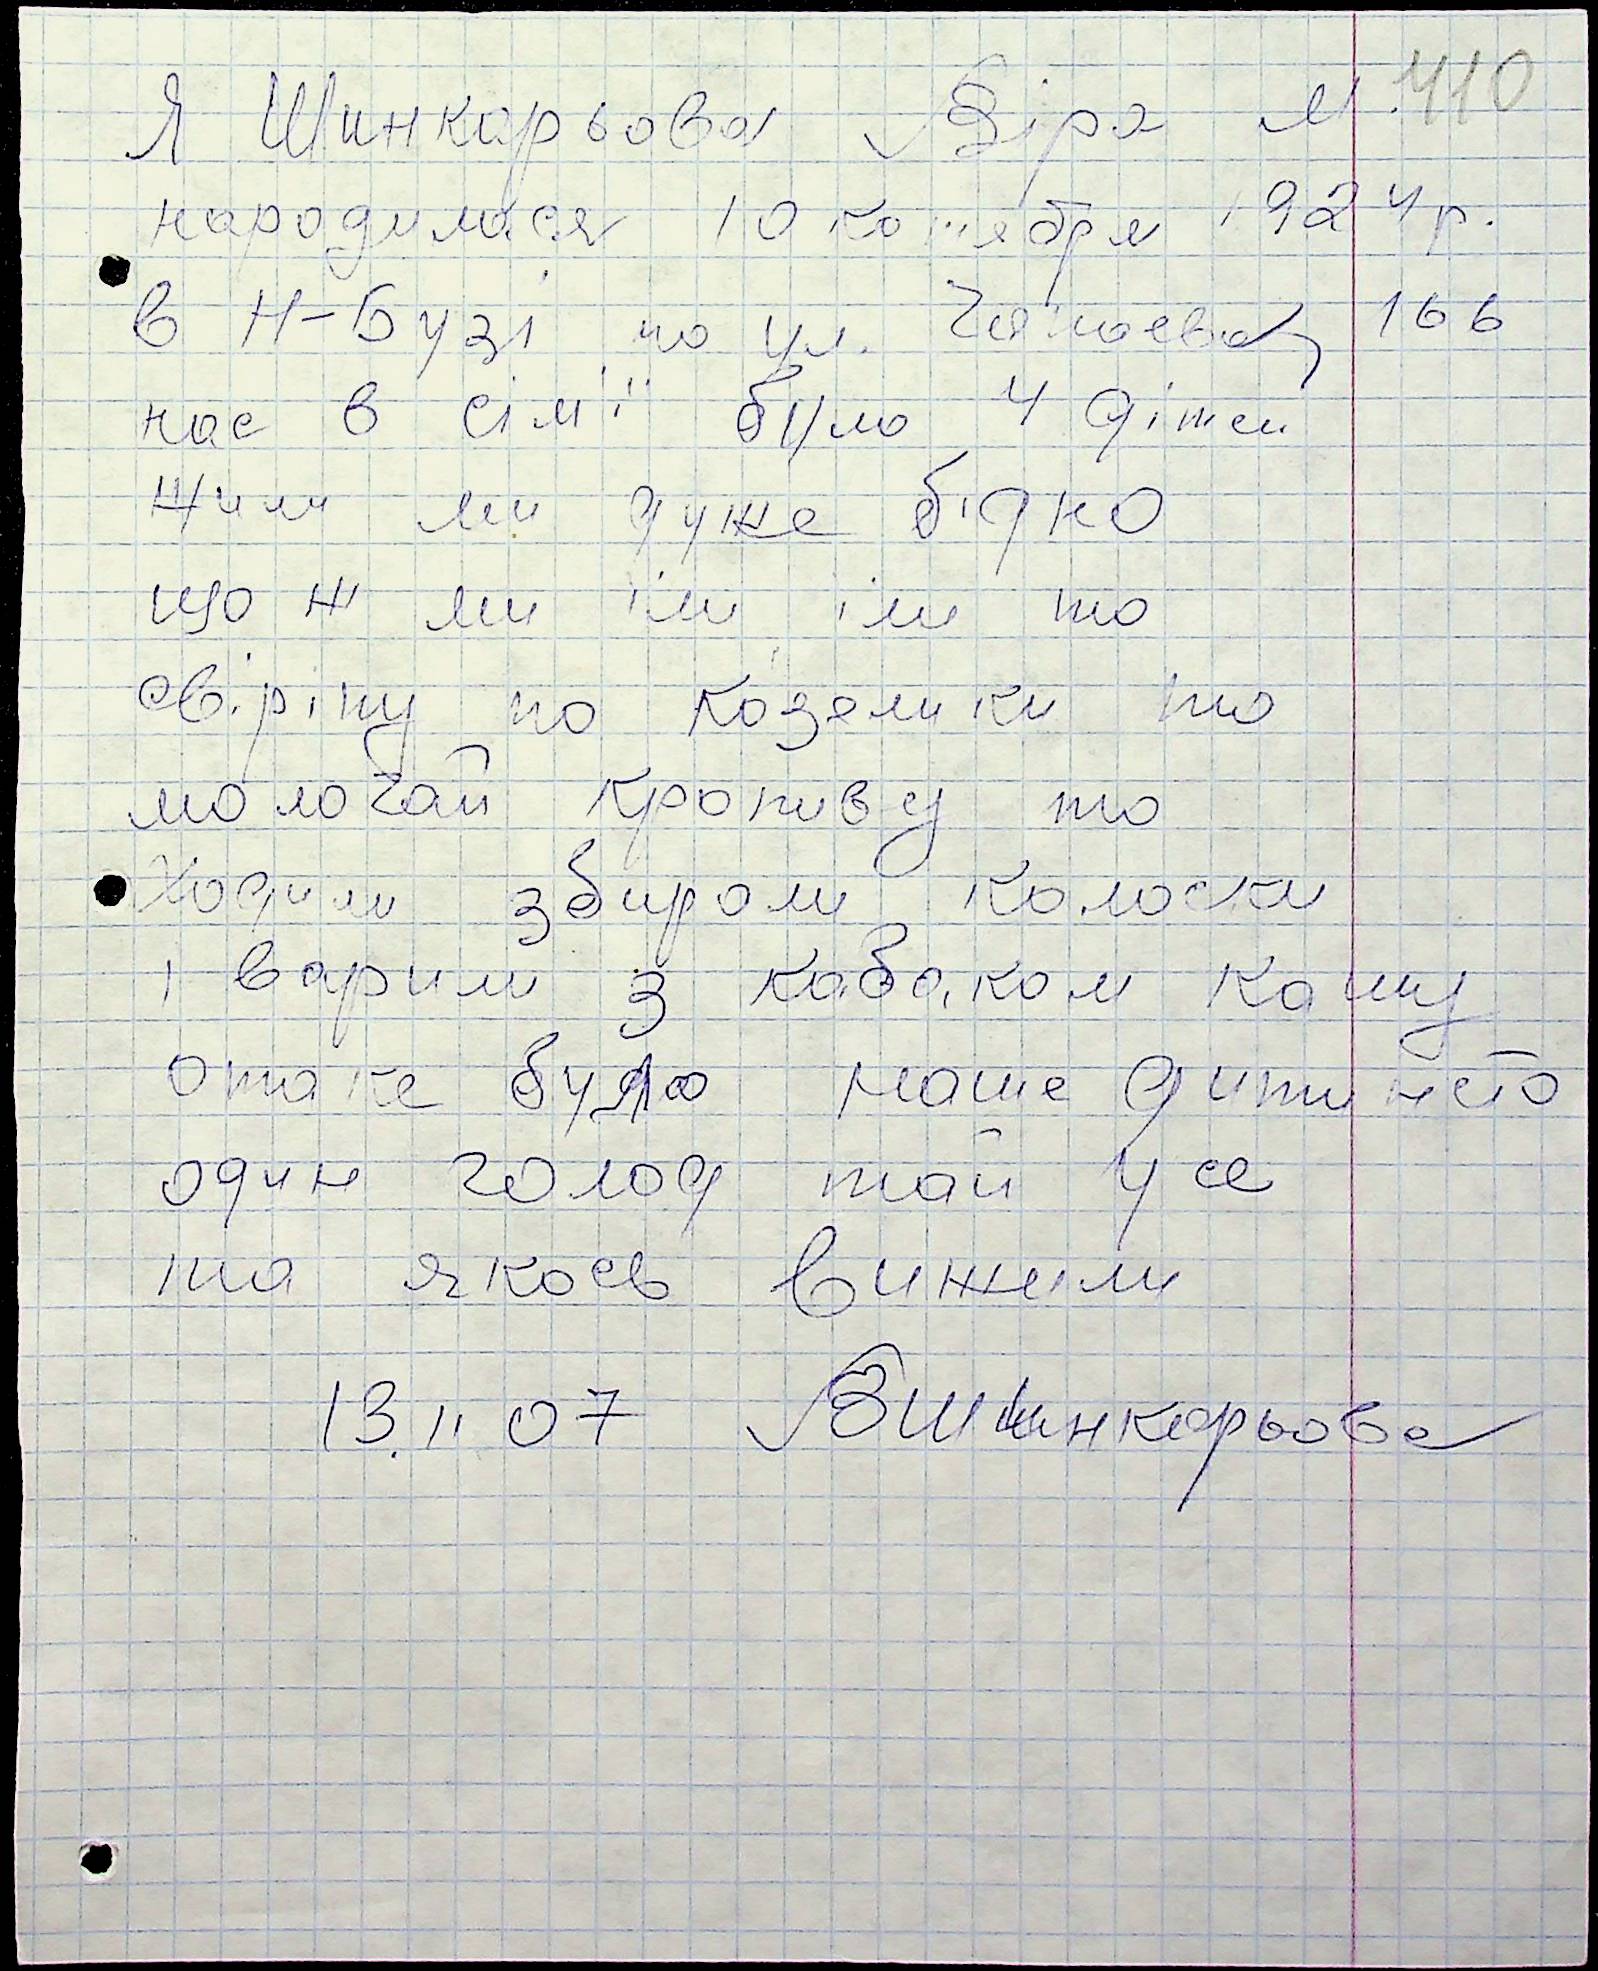 Я Шинкарьова Віра М. 410
народилася 10 котября 1924 р.
в Н-Бузі по ул. Чапаева, 166
нас в сім'ї було 4 дітеи
жили ми дуже бідно
що ж ми їли їли то
свіріпу то козелики то
молочай кропиву то
ходили збирали колоски
і варили з кабаком кашу
отаке було наше дитинсто
один голод тай усе
та якось вижили
13.11 07 ВШинкарьова